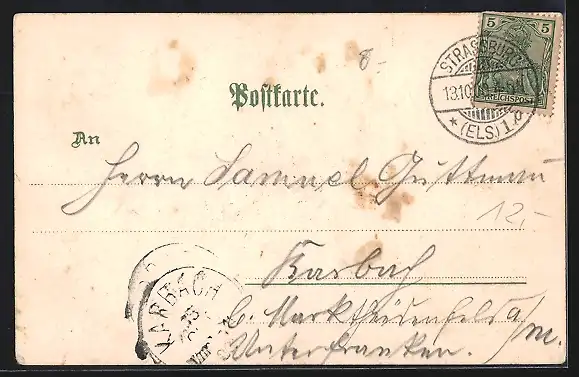 8-
5 5
REICHSPOST
STRASSBURG
13.10.
* (ELS) 1. q
Postkarte.
An
Herrn Samuel Guttman
12,-
Karbach
KARBACH
b. Marktheidenfeld a/m.
Unterfranken.